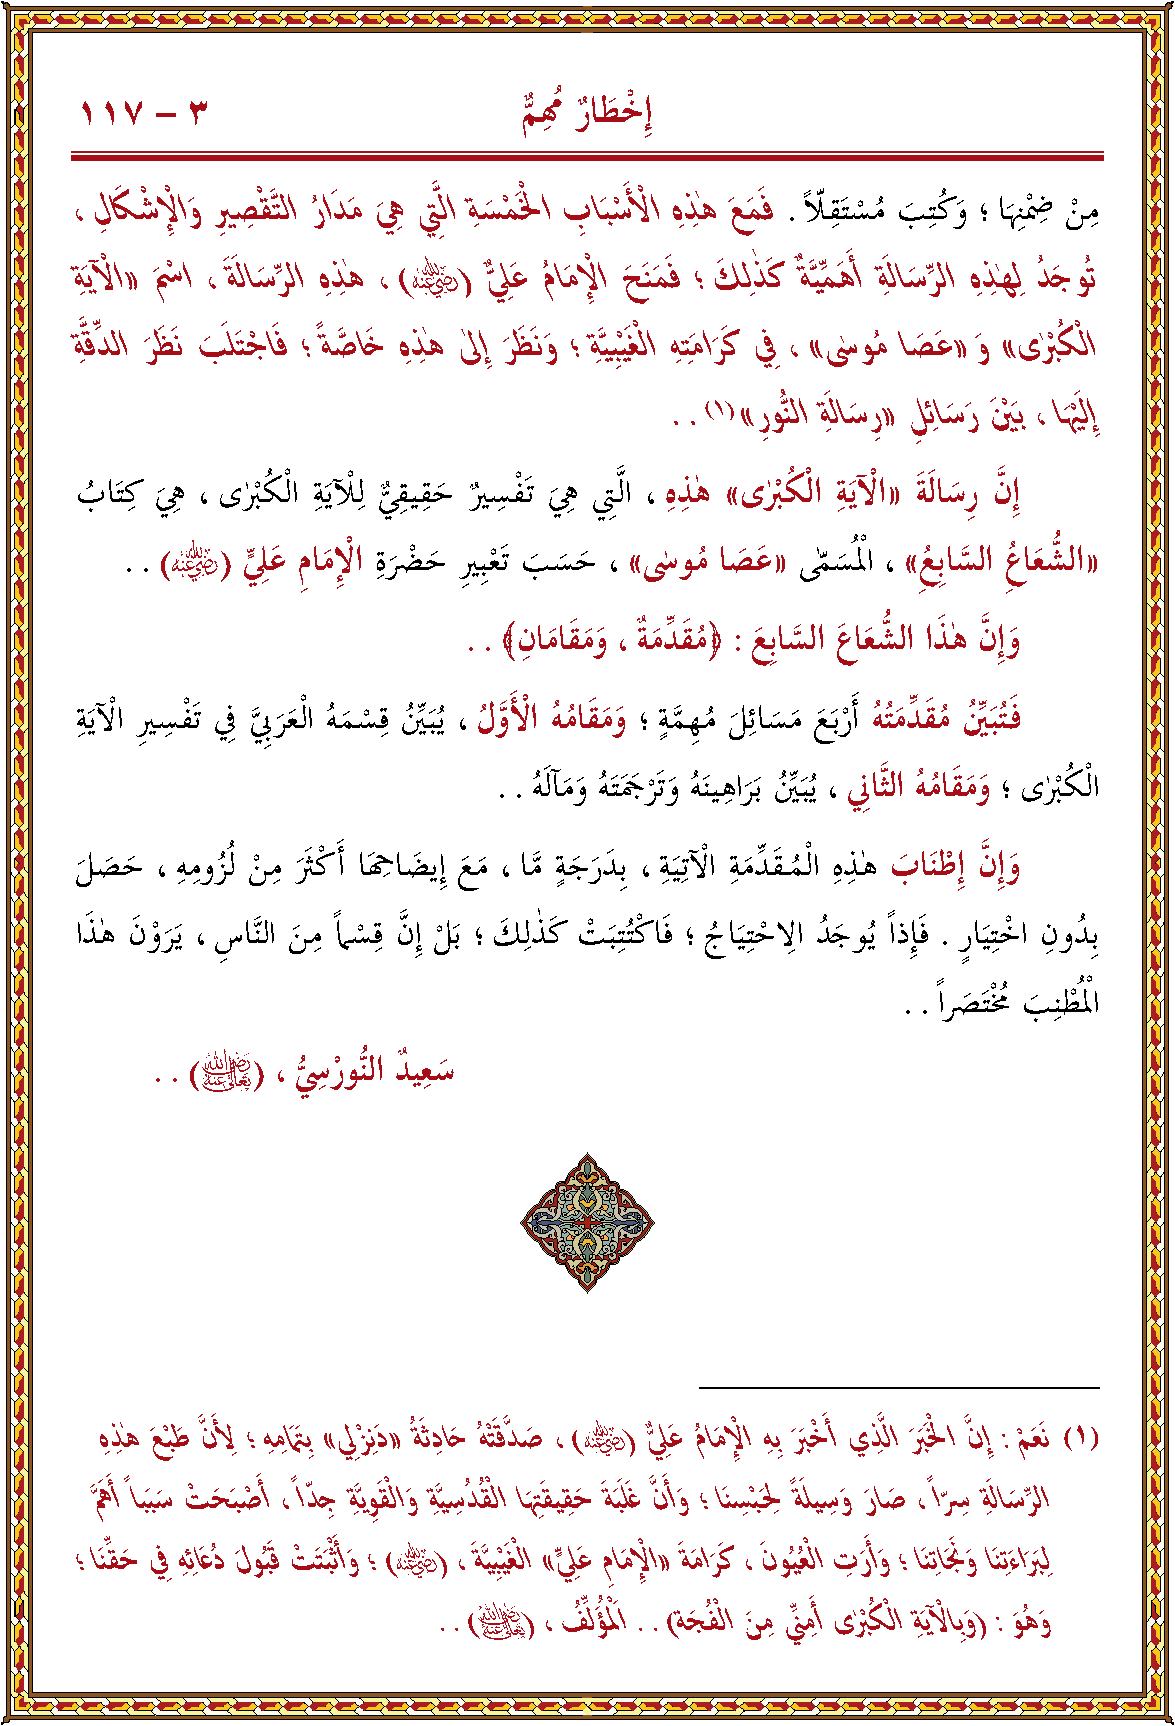 إِخْطَارٌ مُهِمٌّ
٣ – ١١٧
مِنْ ضِمْنِهَا ؛ وَكُتِبَ مُسْتَقِلّاً . فَمَعَ هٰذِهِ الْأَسْبَابِ الْخَمْسَةِ الَّتِي هِيَ مَدَارُ التَّقْصِيرِ وَالْإِشْكَالِ ،
تُوجَدُ لِهٰذِهِ الرِّسَالَةِ أَهَمِّيَّةٌ كَذٰلِكَ ؛ فَمَنَحَ الْإِمَامُ عَلِيٌّ (رضي الله عنه) ، هٰذِهِ الرِّسَالَةَ ، اسْمَ «الْآيَةِ
الْكُبْرٰى» وَ «عَصَا مُوسٰى» ، فِي كَرَامَتِهِ الْغَيْبِيَّةِ ؛ وَنَظَرَ إِلٰى هٰذِهِ خَاصَّةً ؛ فَاجْتَلَبَ نَظَرَ الدِّقَّةِ
إِلَيْهَا ، بَيْنَ رَسَائِلِ «رِسَالَةِ النُّورِ» (١) . .
إِنَّ رِسَالَةَ «الْآيَةِ الْكُبْرٰى» هٰذِهِ ، الَّتِي هِيَ تَفْسِيرٌ حَقِيقِيٌّ لِلْآيَةِ الْكُبْرٰى ، هِيَ كِتَابُ
«الشُّعَاعُ السَّابِعُ» ، الْمُسَمّٰى «عَصَا مُوسٰى» ، حَسَبَ تَعْبِيرِ حَضْرَةِ الْإِمَامِ عَلِيٍّ (رضي الله عنه) . .
وَإِنَّ هٰذَا الشُّعَاعَ السَّابِعَ : {مُقَدِّمَةٌ ، وَمَقَامَانِ} . .
فَتُبَيِّنُ مُقَدِّمَتُهُ أَرْبَعَ مَسَائِلَ مُهِمَّةٍ ؛ وَمَقَامُهُ الْأَوَّلُ ، يُبَيِّنُ قِسْمَهُ الْعَرَبِيَّ فِي تَفْسِيرِ الْآيَةِ
الْكُبْرٰى ؛ وَمَقَامُهُ الثَّانِي ، يُبَيِّنُ بَرَاهِينَهُ وَتَرْجَمَتَهُ وَمَآلَهُ . .
وَإِنَّ إِطْنَابَ هٰذِهِ الْمُقَدِّمَةِ الْآتِيَةِ ، بِدَرَجَةٍ مَّا ، مَعَ إِيضَاحِهَا أَكْثَرَ مِنْ لُزُومِهِ ، حَصَلَ
بِدُونِ اخْتِيَارٍ . فَإِذاً يُوجَدُ الِاحْتِيَاجُ ؛ فَاكْتُتِبَتْ كَذٰلِكَ ؛ بَلْ إِنَّ قِسْماً مِنَ النَّاسِ ، يَرَوْنَ هٰذَا
الْمُطْنِبَ مُخْتَصَراً . .
سَعِيدٌ النُّورْسِيُّ ، (رضي الله تعالى عنه) . .
(١) نَعَمْ : إِنَّ الْخَبَرَ الَّذِي أَخْبَرَ بِهِ الْإِمَامُ عَلِيٌّ (رضي الله عنه) ، صَدَّقَتْهُ حَادِثَةُ «دَنِزْلِي» بِتَمَامِهِ ؛ لِأَنَّ طَبْعَ هٰذِهِ
الرِّسَالَةِ سِرّاً ، صَارَ وَسِيلَةً لِحَبْسِنَا ؛ وَأَنَّ غَلَبَةَ حَقِيقَتِهَا الْقُدْسِيَّةِ وَالْقَوِيَّةِ جِدّاً ، أَصْبَحَتْ سَبَباً أَهَمَّ
لِبَرَاءَتِنَا وَنَجَاتِنَا ؛ وَأَرَتِ الْعُيُونَ ، كَرَامَةَ «الْإِمَامِ عَلِيٍّ» الْغَيْبِيَّةَ ، (رضي الله عنه) ؛ وَأَثْبَتَتْ قَبُولَ دُعَائِهِ فِي حَقِّنَا ؛
وَهُوَ : (وَبِالْآيَةِ الْكُبْرٰى أَمِنِّي مِنَ الْفُجَةْ) . . الْمُؤَلِّفُ ، (رضي الله تعالى عنه) . .